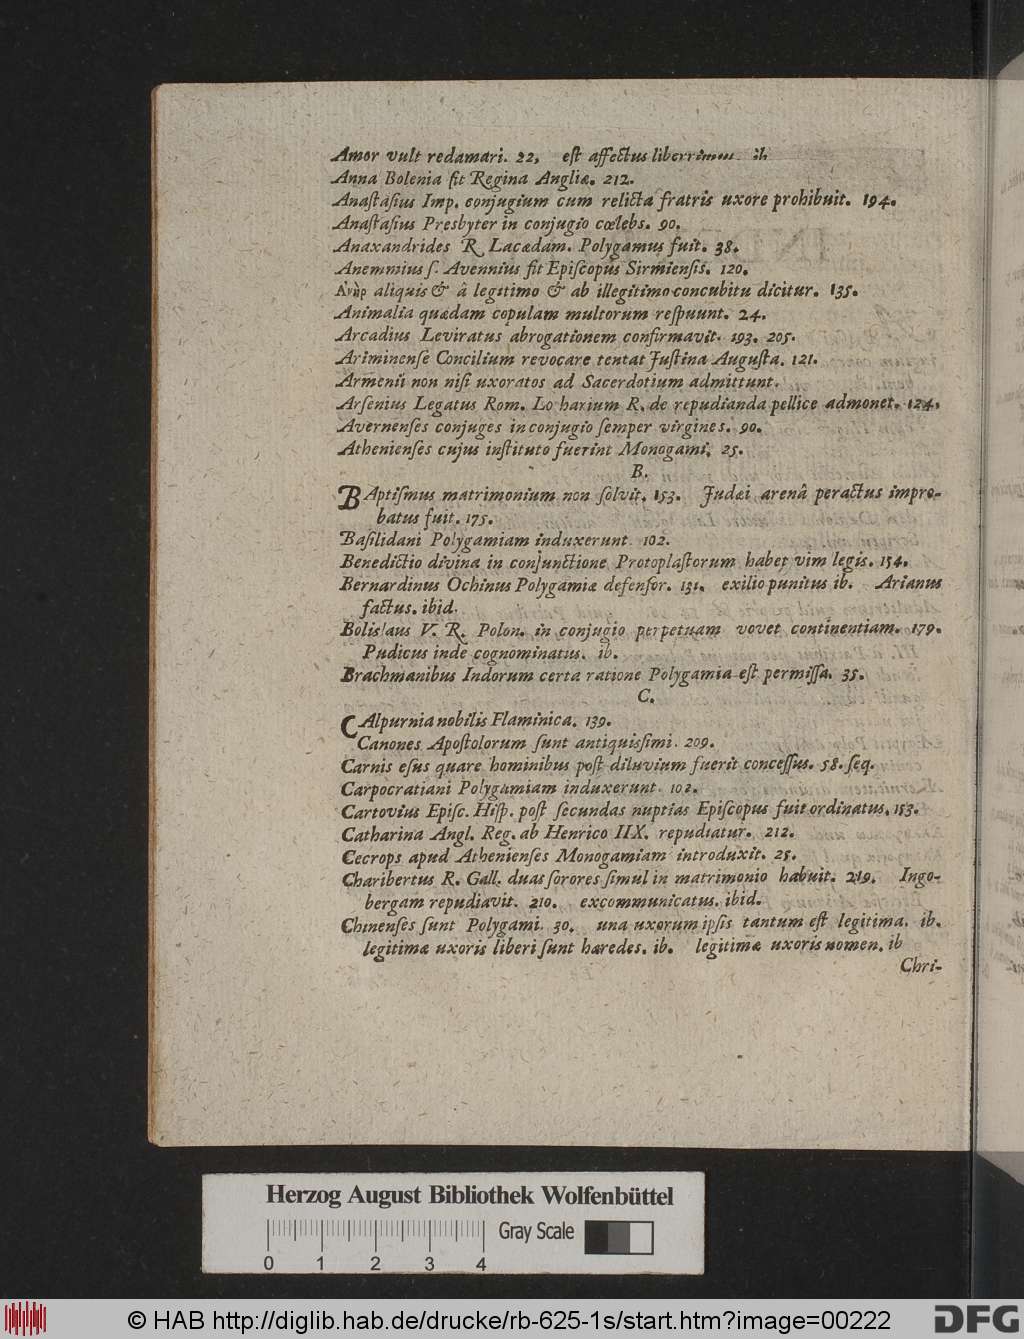 Amor vult redamari. 22, est affectus liberrimus. ib
Anna Bolenia fit Regina Angliæ. 212.
Anaſtaſius Imp. conjugium cum relicta fratris uxore prohibuit. 194.
Anaſtaſius Presbyter in conjugio cœlebs. 90.
Anaxandrides R. Lacædam. Polygamus fuit. 38.
Anemmius ſ. Avennius fit Epiſcopus Sirmienſis. 120.
Ἀνὴρ aliquis & â legitimo & ab illegitimo concubitu dicitur. 135.
Animalia quædam copulam multorum reſpuunt. 24.
Arcadius Leviratus abrogationem confirmavit. 193. 205.
Ariminenſe Concilium revocare tentat Juſtina Auguſta. 121.
Armenii non niſi uxoratos ad Sacerdotium admittunt.
Arſenius Legatus Rom. Lotharium R. de repudianda pellice admonet. 124.
Avernenſes conjuges in conjugio ſemper virgines. 90.
Athenienſes cujus inſtituto fuerint Monogami. 25.
B.
BAptiſmus matrimonium non ſolvit. 153. Judæi arenâ peractus impro-
batus fuit. 175.
Baſilidani Polygamiam induxerunt. 102.
Benedictio divina in conjunctione Protoplaſtorum habet vim legis. 154.
Bernardinus Ochinus Polygamiæ defenſor. 131. exilio punitus ib. Arianus
factus. ibid.
Bolislaus V. R. Polon. in conjugio perpetuam vovet continentiam. 179.
Pudicus inde cognominatus. ib.
Brachmanibus Indorum certa ratione Polygamia eſt permiſſa. 35.
C.
CAlpurnia nobilis Flaminica. 139.
Canones Apoſtolorum ſunt antiquisſimi. 209.
Carnis eſus quare hominibus poſt diluvium fuerit conceſſus. 58. ſeq.
Carpocratiani Polygamiam induxerunt. 102.
Cartovius Epiſc. Hiſp. poſt ſecundas nuptias Epiſcopus fuit ordinatus. 153.
Catharina Angl. Reg. ab Henrico IIX. repudiatur. 212.
Cecrops apud Athenienſes Monogamiam introduxit. 25.
Charibertus R. Gall. duas ſorores ſimul in matrimonio habuit. 219. Ingo-
bergam repudiavit. 210. excommunicatus. ibid.
Chinenſes ſunt Polygami. 30. una uxorum ipſis tantum eſt legitima. ib.
legitimæ uxoris liberi ſunt hæredes. ib. legitimæ uxoris nomen. ib
Chri-
Herzog August Bibliothek Wolfenbüttel
Gray Scale
0 1 2 3 4
© HAB http://diglib.hab.de/drucke/rb-625-1s/start.htm?image=00222
DFG